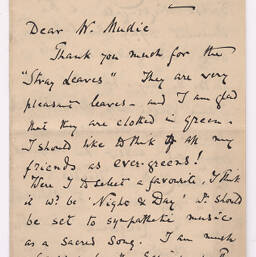 Dear W. Mudie
Thank you much for the
"Stray Leaves" They are very
pleasant leaves - and I am glad
that they are clothed in green -
I should like to think of all my
friends as evergreens!
Were I to select a favourite, I think
it wd. be 'Night & Day' It should
be set to sympathetic music
as a Sacred Song. I am much